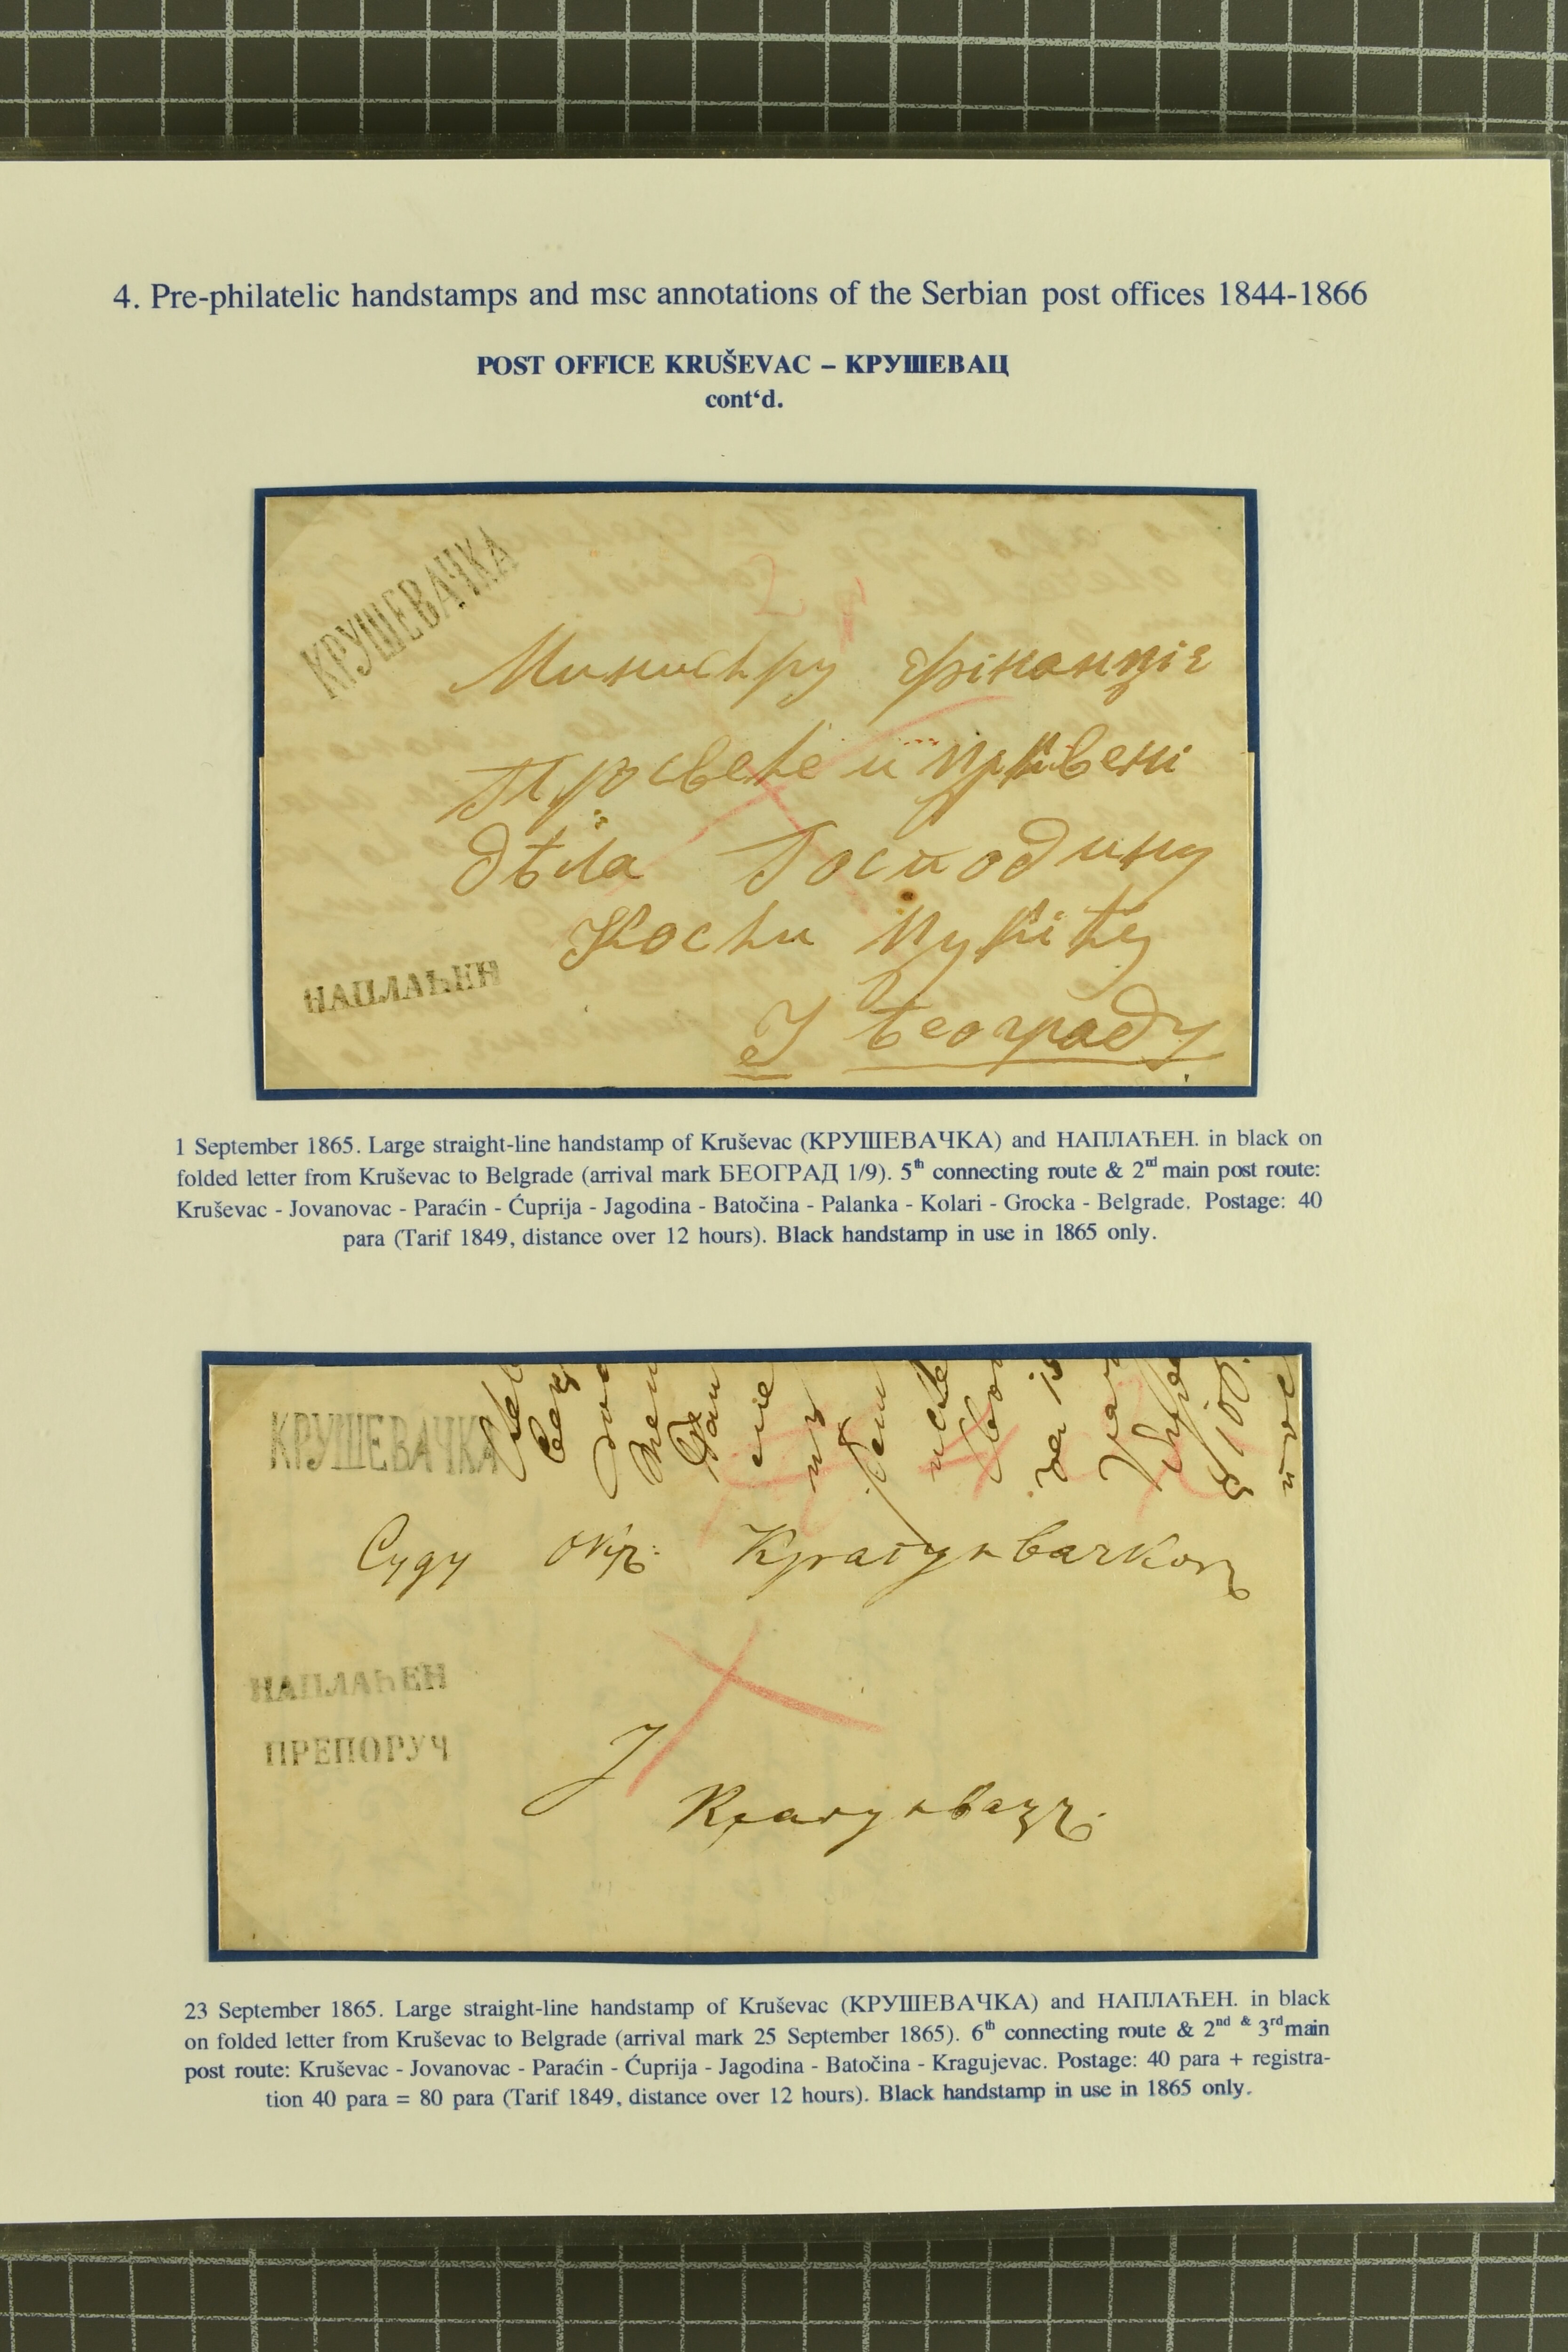 4. Pre-philatelic handstamps and msc annotations of the Serbian post offices 1844-1866
POST OFFICE KRUŠEVAC – КРУШЕВАЦ
cont‘d.
КРУШЕВАЧКА
Просвете и
дѣла Господину
У Београду
НАПЛАЋЕН
1 September 1865. Large straight-line handstamp of Kruševac (КРУШЕВАЧКА) and НАПЛАЋЕН. in black on
folded letter from Kruševac to Belgrade (arrival mark БЕОГРАД 1/9). 5th connecting route & 2nd main post route:
Kruševac - Jovanovac - Paraćin - Ćuprija - Jagodina - Batočina - Palanka - Kolari - Grocka - Belgrade. Postage: 40
para (Tarif 1849, distance over 12 hours). Black handstamp in use in 1865 only.
КРУШЕВАЧКА
Суду окр:
НАПЛАЋЕН
ПРЕПОРУЧ
У
23 September 1865. Large straight-line handstamp of Kruševac (КРУШЕВАЧКА) and НАПЛАЋЕН. in black
on folded letter from Kruševac to Belgrade (arrival mark 25 September 1865). 6th connecting route & 2nd & 3rd main
post route: Kruševac - Jovanovac - Paraćin - Ćuprija - Jagodina - Batočina - Kragujevac. Postage: 40 para + registra-
tion 40 para = 80 para (Tarif 1849, distance over 12 hours). Black handstamp in use in 1865 only.